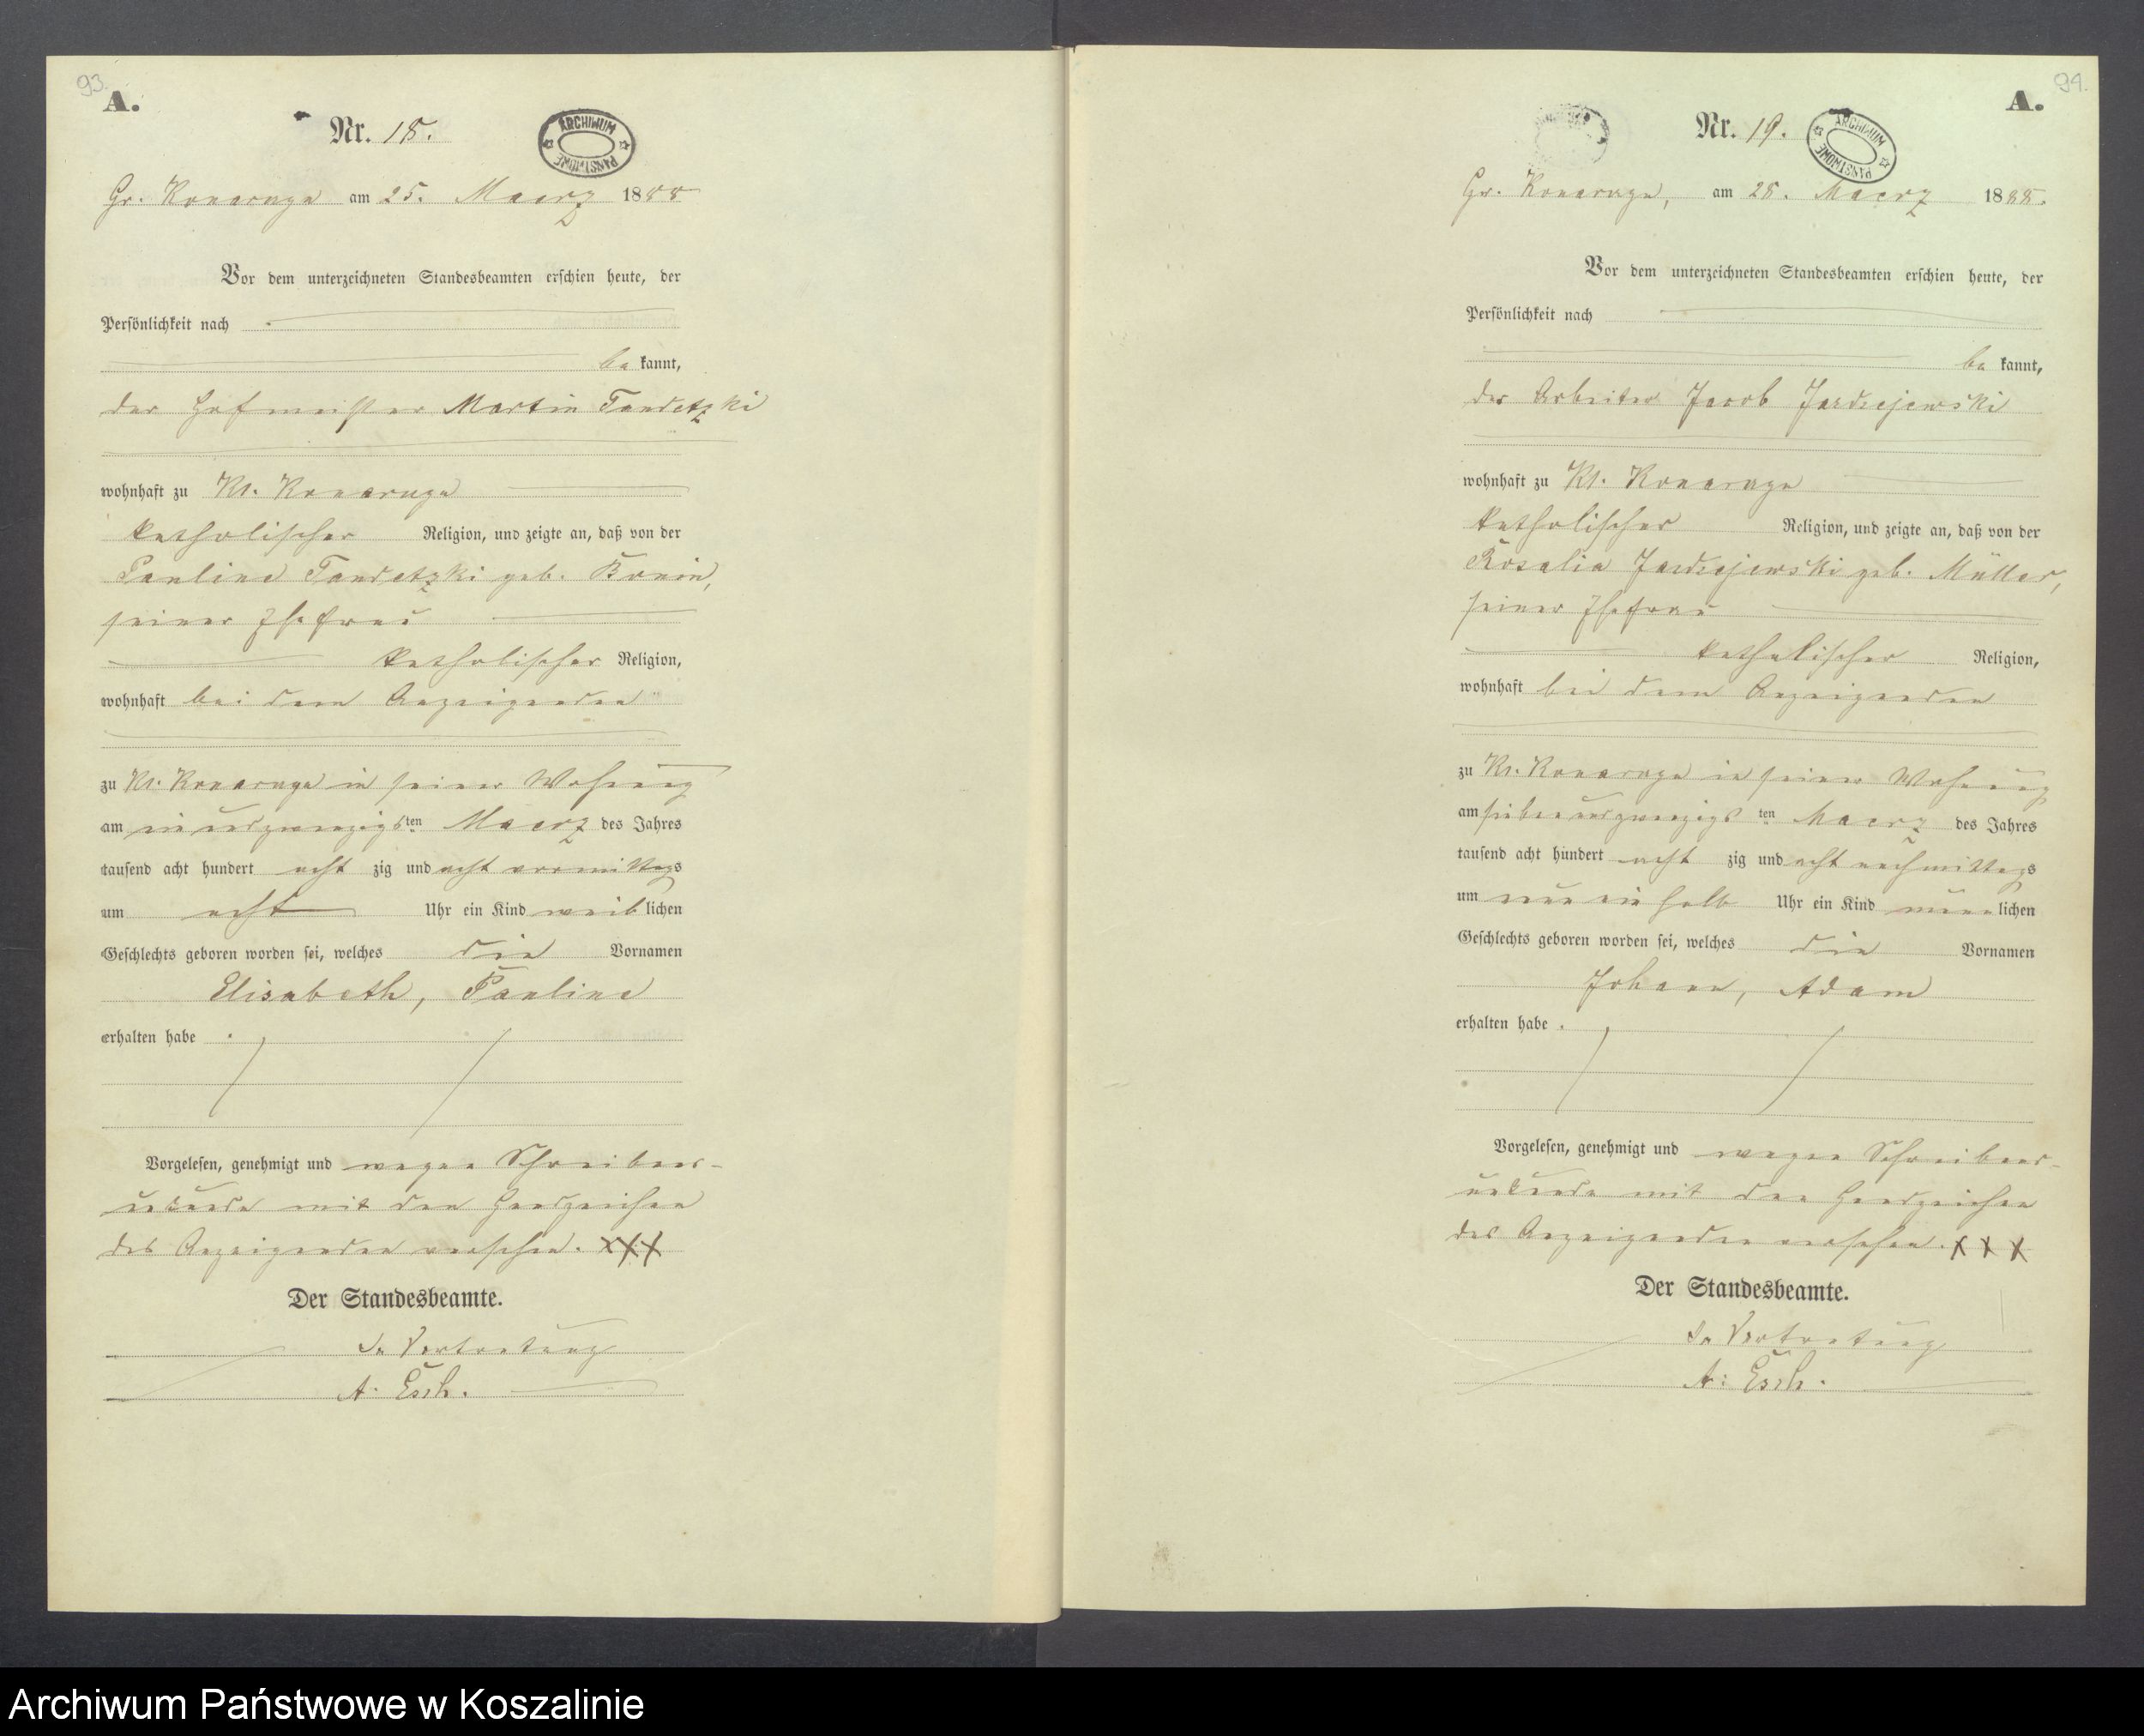 93.
A.
Nr. 18.
ARCHIWUM PAŃSTWOWE
Gr. Konarczyn am 25. Maerz 1888
Vor dem unterzeichneten Standesbeamten erschien heute, der
Persönlichkeit nach
be kannt,
der Hofmeister Martin Tandetzki
wohnhaft zu Kl. Konarczyn
katholischer Religion, und zeigte an, daß von der
Pauline Tandetzki geb. Bonin,
seiner Ehefrau
katholischer Religion,
wohnhaft bei dem Anzeigenden
zu Kl. Konarczyn in seiner Wohnung
am ein und zwanzigsten Maerz des Jahres
tausend acht hundert acht zig und acht vormittags
um acht Uhr ein Kind weiblichen
Geschlechts geboren worden sei, welches die Vornamen
Elisabeth, Pauline
erhalten habe.
Vorgelesen, genehmigt und wegen Schreibens-
unkunde mit den Handzeichen
des Anzeigenden versehen. XXX
Der Standesbeamte.
In Vertretung
A. Esch.
94.
A.
Nr. 19.
ARCHIWUM PAŃSTWOWE
Gr. Konarczyn, am 28. Maerz 1888.
Vor dem unterzeichneten Standesbeamten erschien heute, der
Persönlichkeit nach
be kannt,
der Arbeiter Jacob Jardzejewski
wohnhaft zu Kl. Konarczyn
katholischer Religion, und zeigte an, daß von der
Rosalia Jardzejewski geb. Müller,
seiner Ehefrau
katholischer Religion,
wohnhaft bei dem Anzeigenden
zu Kl. Konarczyn in seiner Wohnung
am sieben und zwanzigsten Maerz des Jahres
tausend acht hundert acht zig und acht nachmittags
um neun ein halb Uhr ein Kind männlichen
Geschlechts geboren worden sei, welches die Vornamen
Johann, Adam
erhalten habe.
Vorgelesen, genehmigt und wegen Schreibens-
unkunde mit den Handzeichen
des Anzeigenden versehen. XXX
Der Standesbeamte.
In Vertretung
A: Esch.
Archiwum Państwowe w Koszalinie